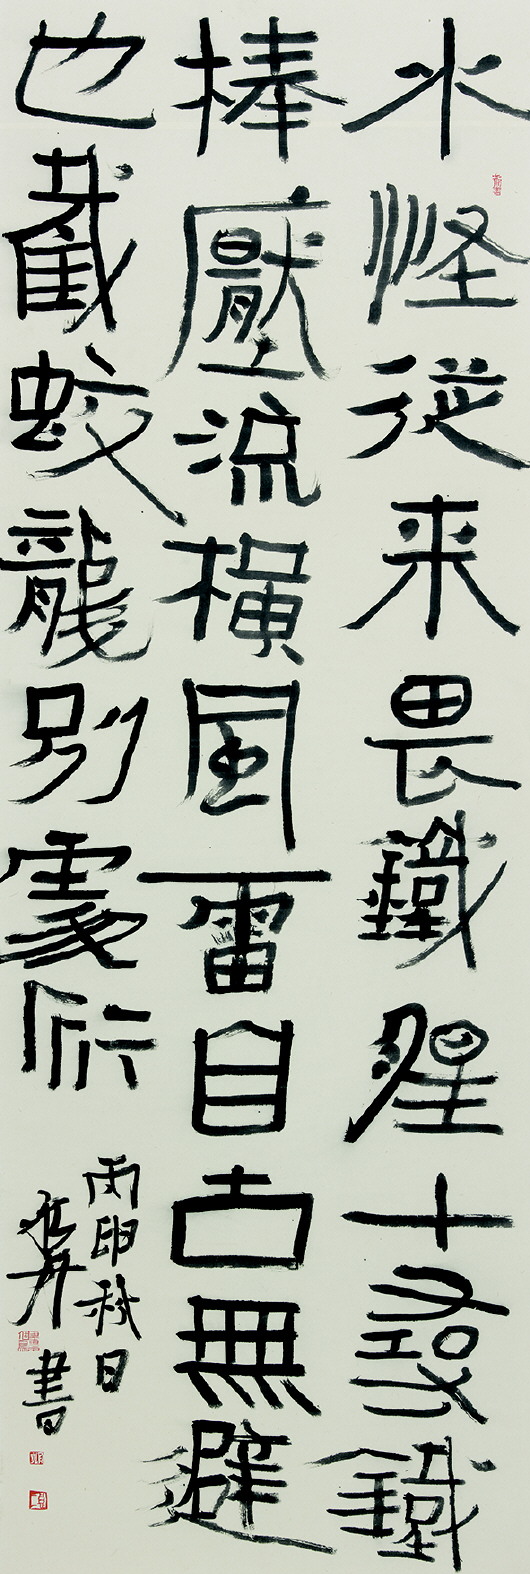 水怪從来畏鐵腥十尋鐵
棒壓流橫風雷自古無避
也截蛟龍別處行
丙申秋日
書